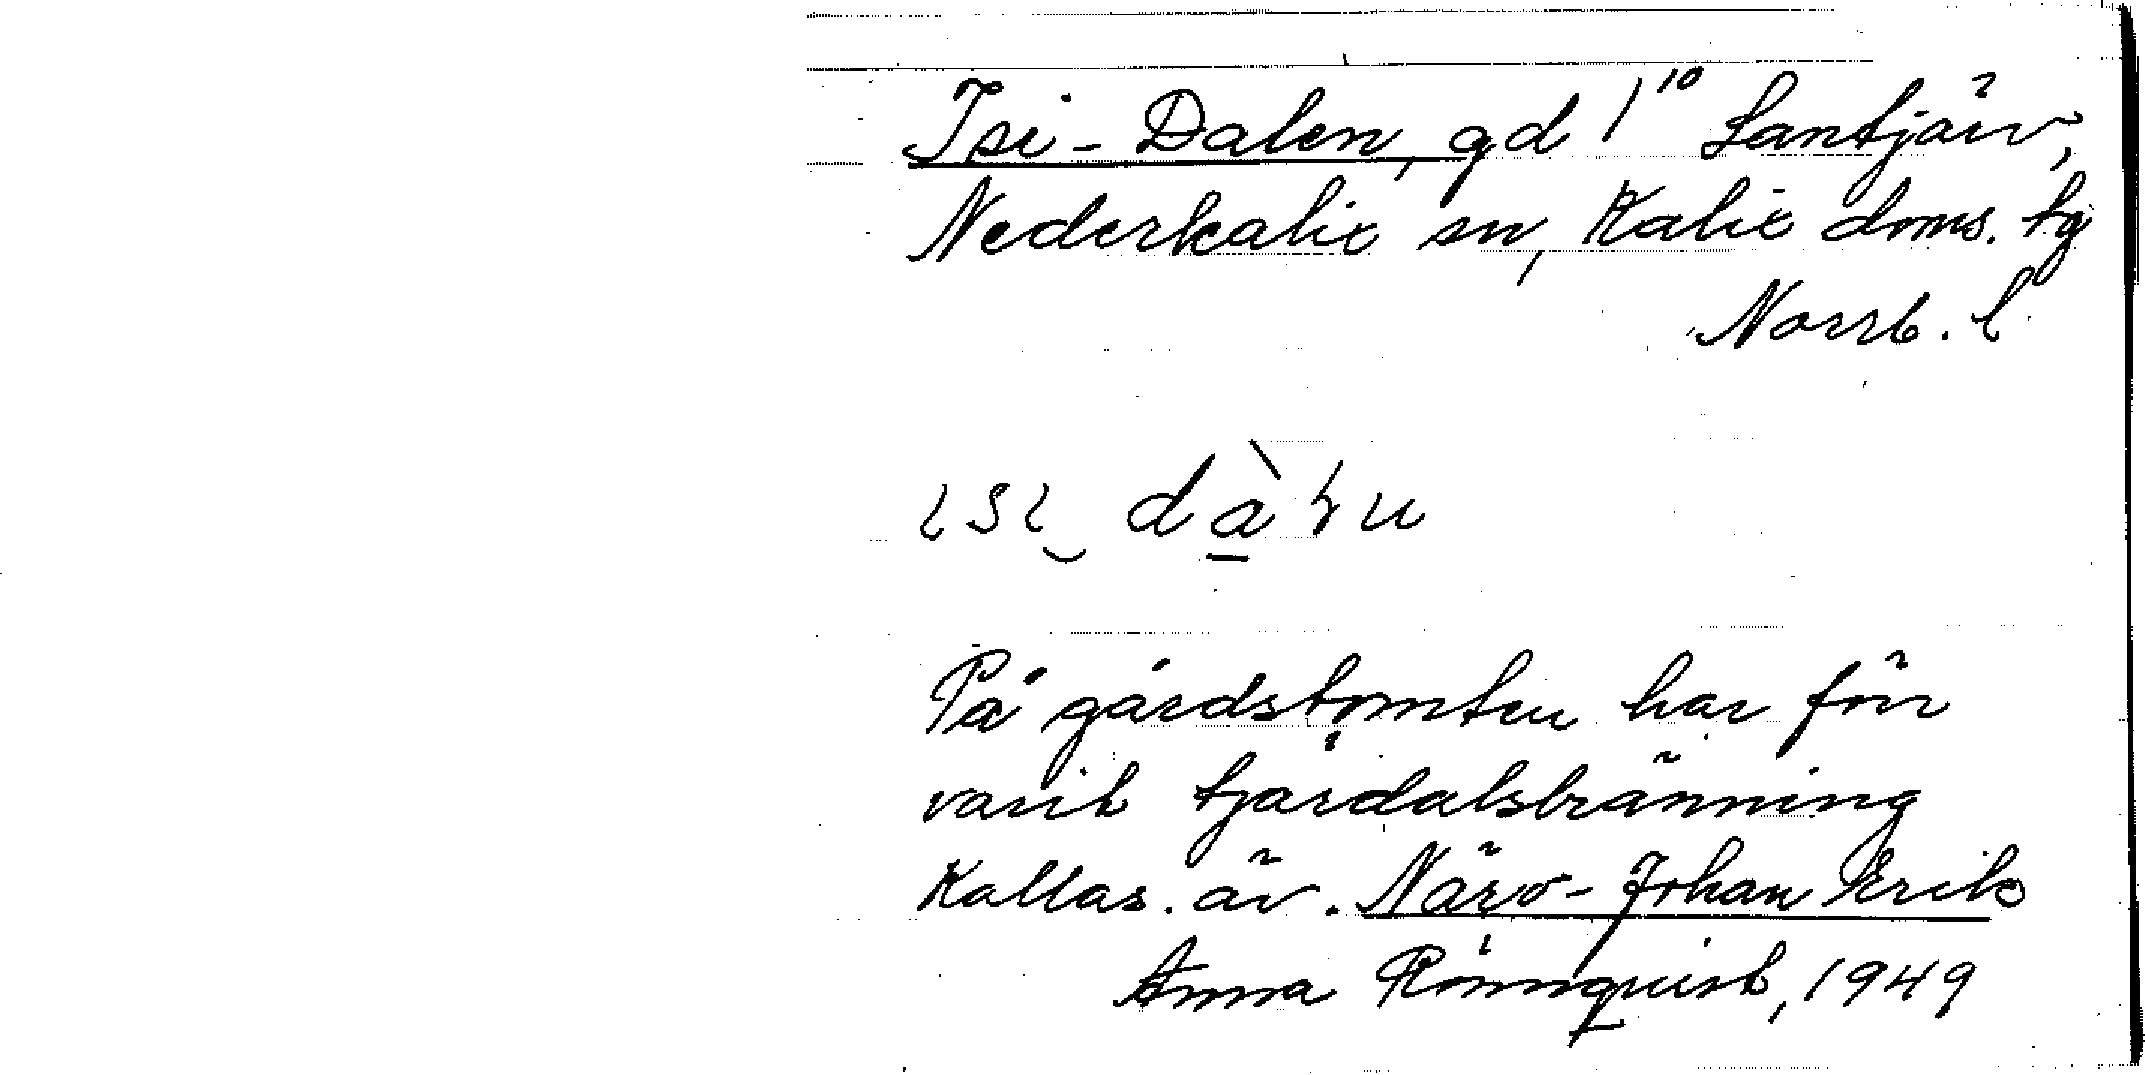 Isi-Dalen, gd 1¹⁰ Lantjärv,
Nederkalix sn, Kalix doms. tg
Norrb. l
På gårdstomten har förr
varit tjärdalsbränning
Kallas. äv. Närv-Johan Erik
Anna Rönnquist, 1949